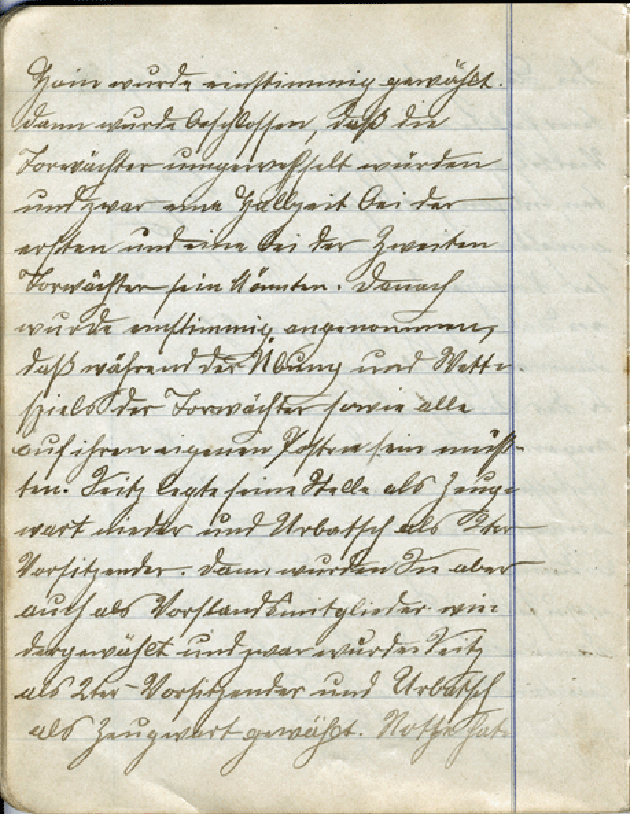 Hain wurde einstimmig gewählt.
Dann wurde beschlossen, daß die
Torwächter umgewechselt würden
und zwar eine Halbzeit bei der
ersten und eine bei der Zweiten
Torwächter sein könnten. Danach
wurde einstimmig angenommen,
daß während der Übung und Wett-
spiels der Torwächter sowie alle
auf ihren eigenen Posten sein müß-
ten. Seitz legte seine Stelle als Zeug-
wart nieder und Urbatsch als 2ter
Vorsitzender. Dann wurden Sie aber
auch als Vorstandsmitglieder wie-
dergewählt und zwar wurde Seitz
als 2ter Vorsitzender und Urbatsch
als Zeugwart gewählt.